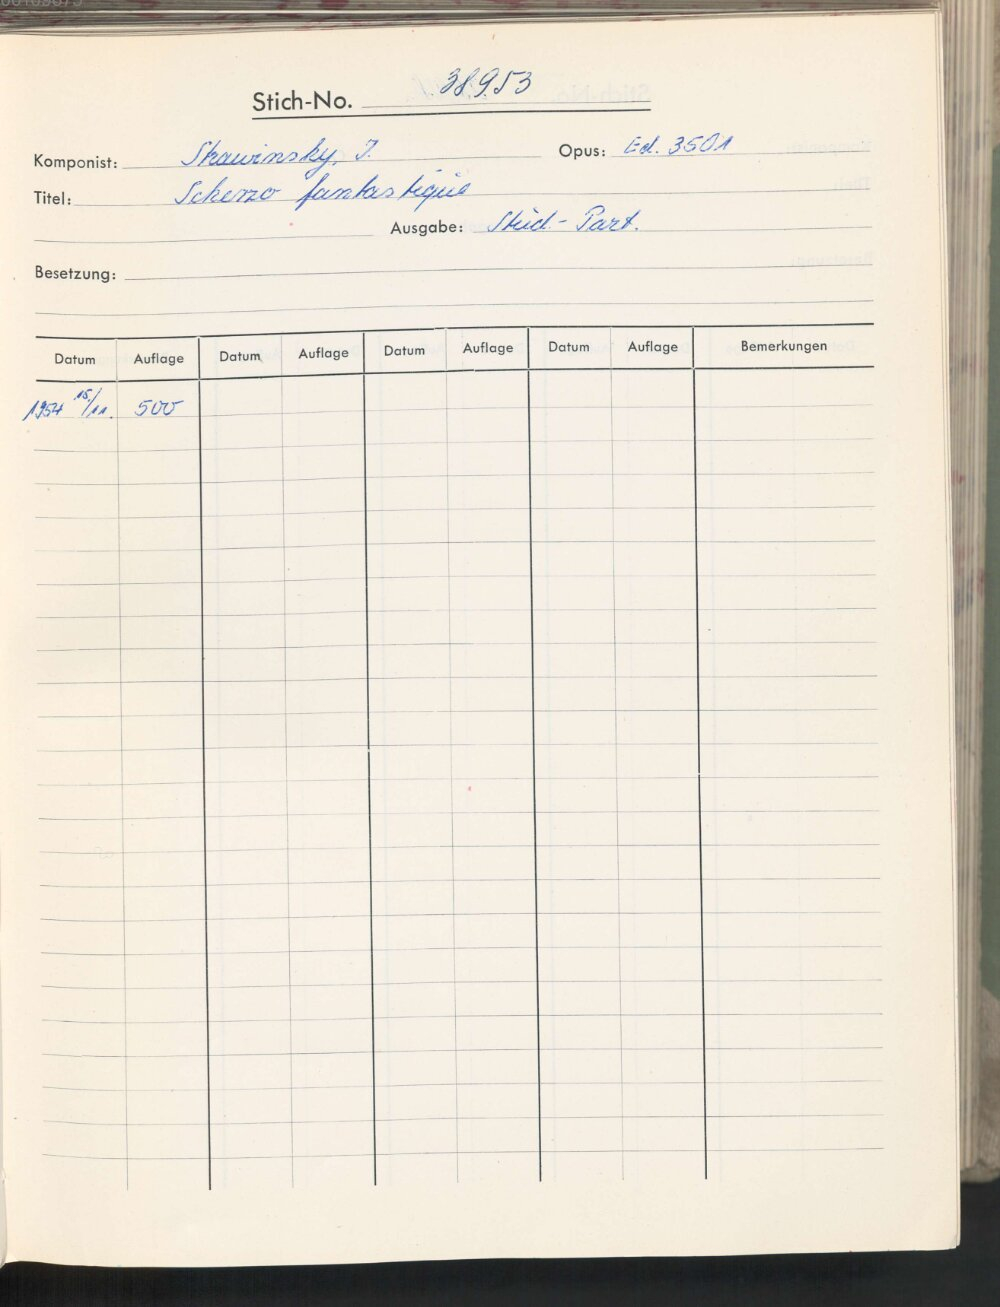 Stich-No. 38953
Komponist: Strawinsky, I. Opus: Ed. 3501
Titel: Scherzo fantastique
Ausgabe: Stud-Part.
Besetzung:
Datum Auflage Datum Auflage Datum Auflage Datum Auflage Bemerkungen
1954 15/11. 500